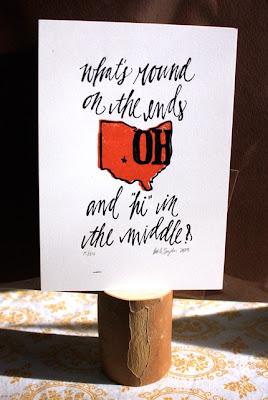 what's round
on the ends
OH
and "hi" in
the middle?